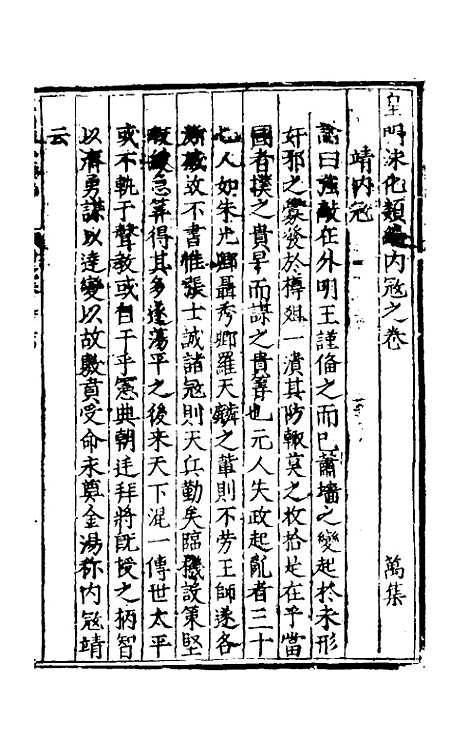 皇明泳化類編內冦之卷 萬集
靖內冦
論曰強敵在外明王謹俻之而已蕭墻之變起於未形
奸邪之釁發於樽俎一潰其防輙莫之枚拾是在乎當
國者撲之貴早而謀之貴筭也元人失政起亂者三十
人如朱光卿聶秀卿羅天麟之輩則不劳王師遂各
故不書惟張士誠諸冦則天兵勤矣臨機設策堅
急筭得其多遂荡平之後来天下混一傳世太平
或不軌于聲教或自干乎憲典朝廷拜將旣授之柄智
以濟勇謀以達變以故數賁受命永奠金湯称内冦靖
云